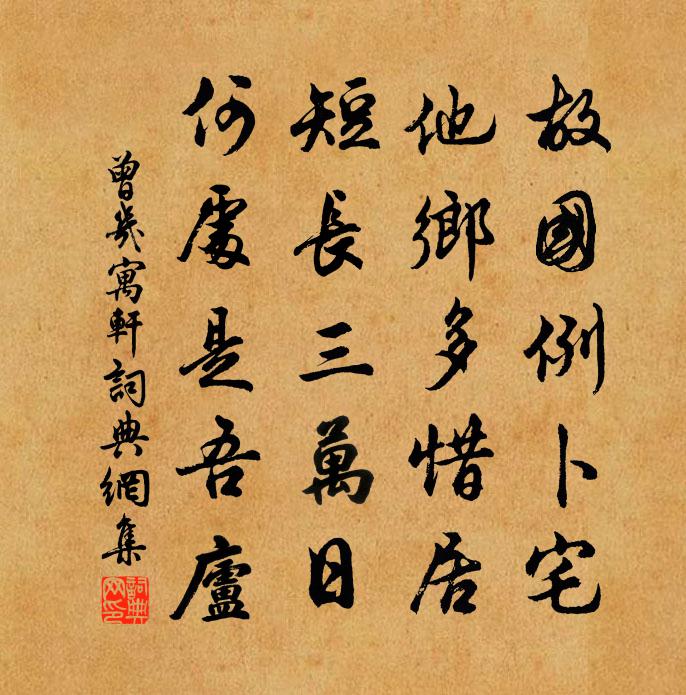 故國例卜宅
他鄉多惜居
短長三萬日
何處是吾廬
曾幾寓軒詞典網集
詞典網印